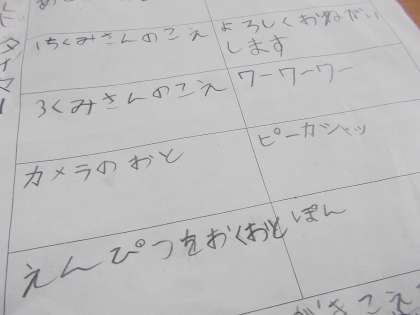 タイマー
1ちくみさんのこえ
よろしくおねがい
します
3くみさんのこえ
ワーワーワー
カメラのおと
ピーカシャッ
えんぴつをおくおと
ぽん
がきこえ